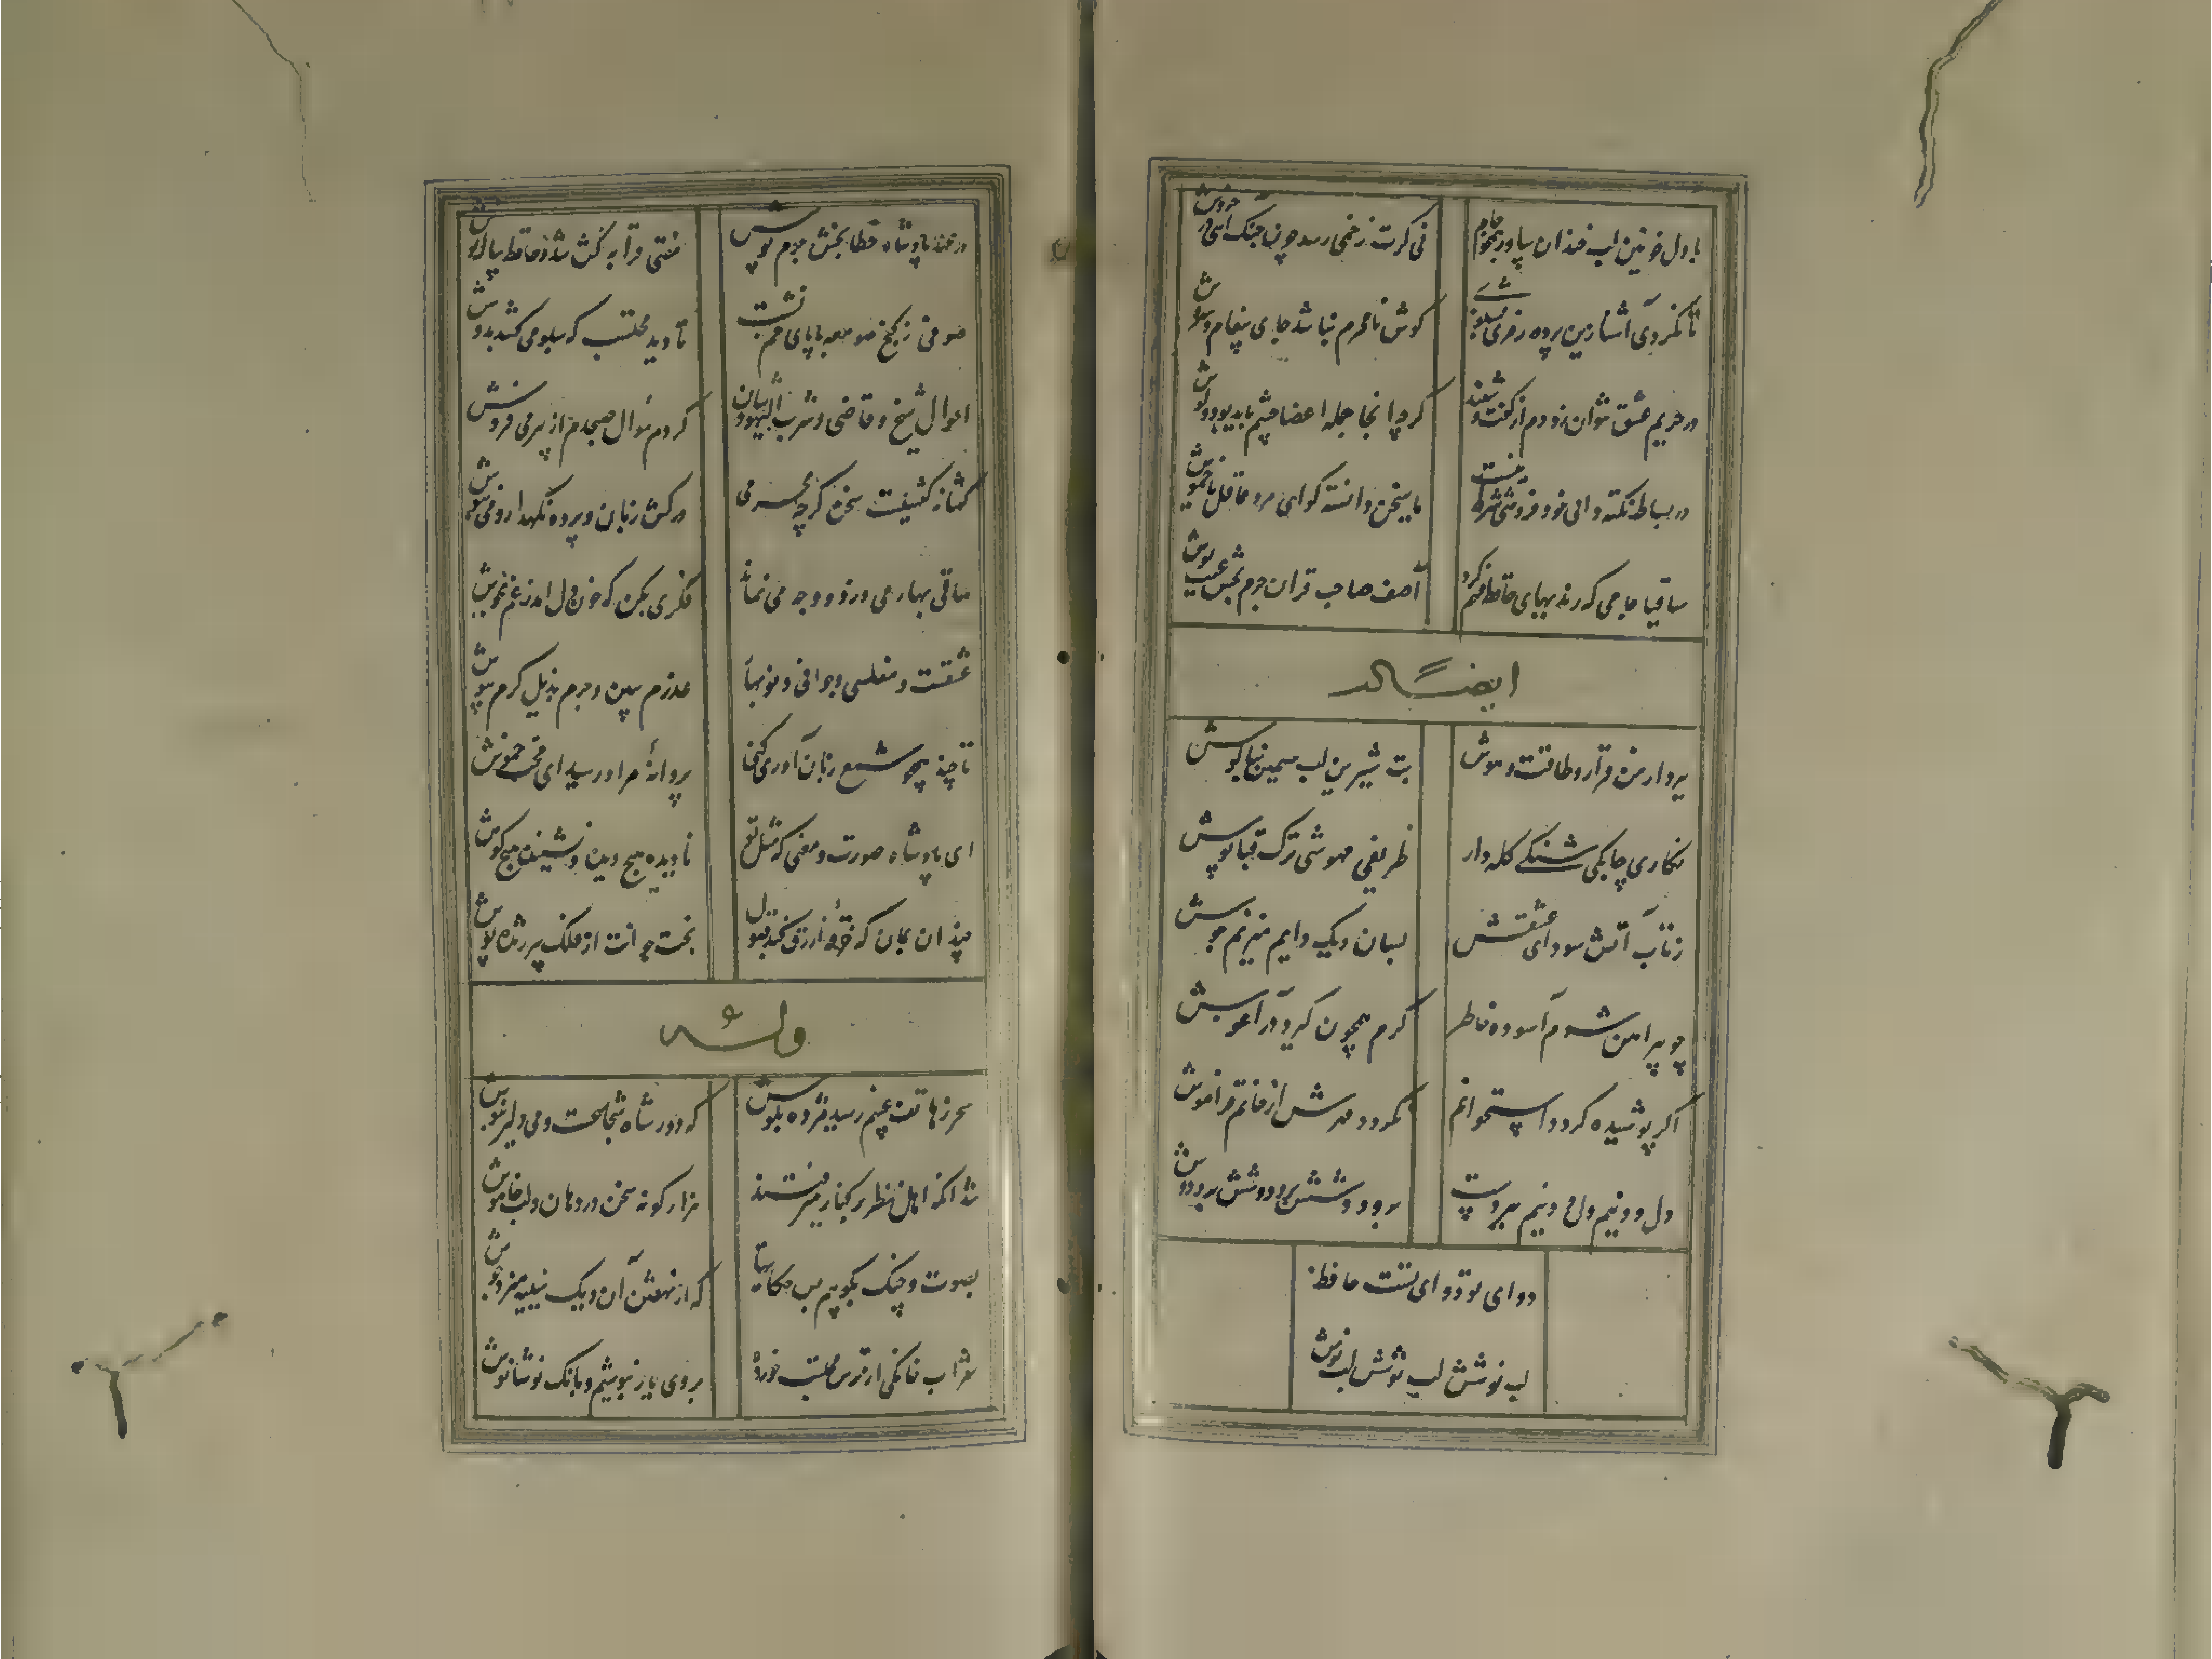 با دل خونین لب خندان بیاور همچو جام
نی کرت زخمی رسد چون چنک آیی در خروش
تا نکردی آشنا زین پرده رمزی نشنوی
کوش نامحرم نباشد جای پیغام سروش
در حریم عشق نتوان زد دم از کفت و شنید
کرچه انجا جمله اعضا چشم باید بود و کوش
در بساط نکته دانی خود فروشی شرط نیست
یا سخن دانسته کو ای مرد عاقل یا خموش
ساقیا جامی که رندیهای حافظ فهم کرد
آصف صاحب قران جرم بخش عیب پوش
ایضا له
ببرد از من قرار و طاقت و هوش
بت شیرین لب سیمین بناکوش
نکاری چابکی شنکی کله دار
ظریفی مهوشی ترک قباپوش
ز تاب آتش سودای عشقش
بسان دیک دایم میزنم جوش
چو پیراهن شوم آسوده خاطر
کرم همچون کیرد در آغوش
اکر پوشیده کردد استخوانم
نکردد مهرش از جانم فراموش
دل و دینم دل و دینم ببردست
بر و دوشش بر و دوشش بر و دوش
دوای تو دوای تست حافظ
لب نوشش لب نوشش لب نوش
در عهد پادشاه خطابخش جرم پوش
مفتی قرابه کش شد و حافظ پیاله نوش
صوفی ز کنج صومعه با پای خم نشست
تا دید محتسب که سبو می کشد بدوش
احوال شیخ و قاضی و شرب الیهودشان
کردم سوال صبحدم از پیر می فروش
کفتا نه کفتنیست سخن کرچه محرمی
درکش زبان و پرده نکهدار و می بنوش
ساقی بهار می رسد و وجه می نماند
فکری بکن که خون دل آمد ز غم بجوش
عشقست و مفلسی و جوانی و نوبهار
عذرم پذیر و جرم بذیل کرم بپوش
تا چند همچو شمع زبان آوری کنی
پروانه مراد رسید ای محب خموش
ای پادشاه صورت و معنی که مثل تو
نادیده هیچ دیده و نشنیده هیچ کوش
چندان بمان که خرقه ازرق کند قبول
بخت جوانت از فلک پیر ژنده پوش
وله
سحر ز هاتف غیبم رسید مژده بکوش
که دور شاه شجاعست و می دلیر بنوش
شد آنکه اهل نظر بر کناره میرفتند
هزار کونه سخن در دهان و لب خاموش
بصوت چنک بکوییم بس حکایتها
که از نهفتن آن دیک سینه میزد جوش
شراب خانکی از ترس محتسب خورده
بروی یار بنوشیم و بانک نوشانوش